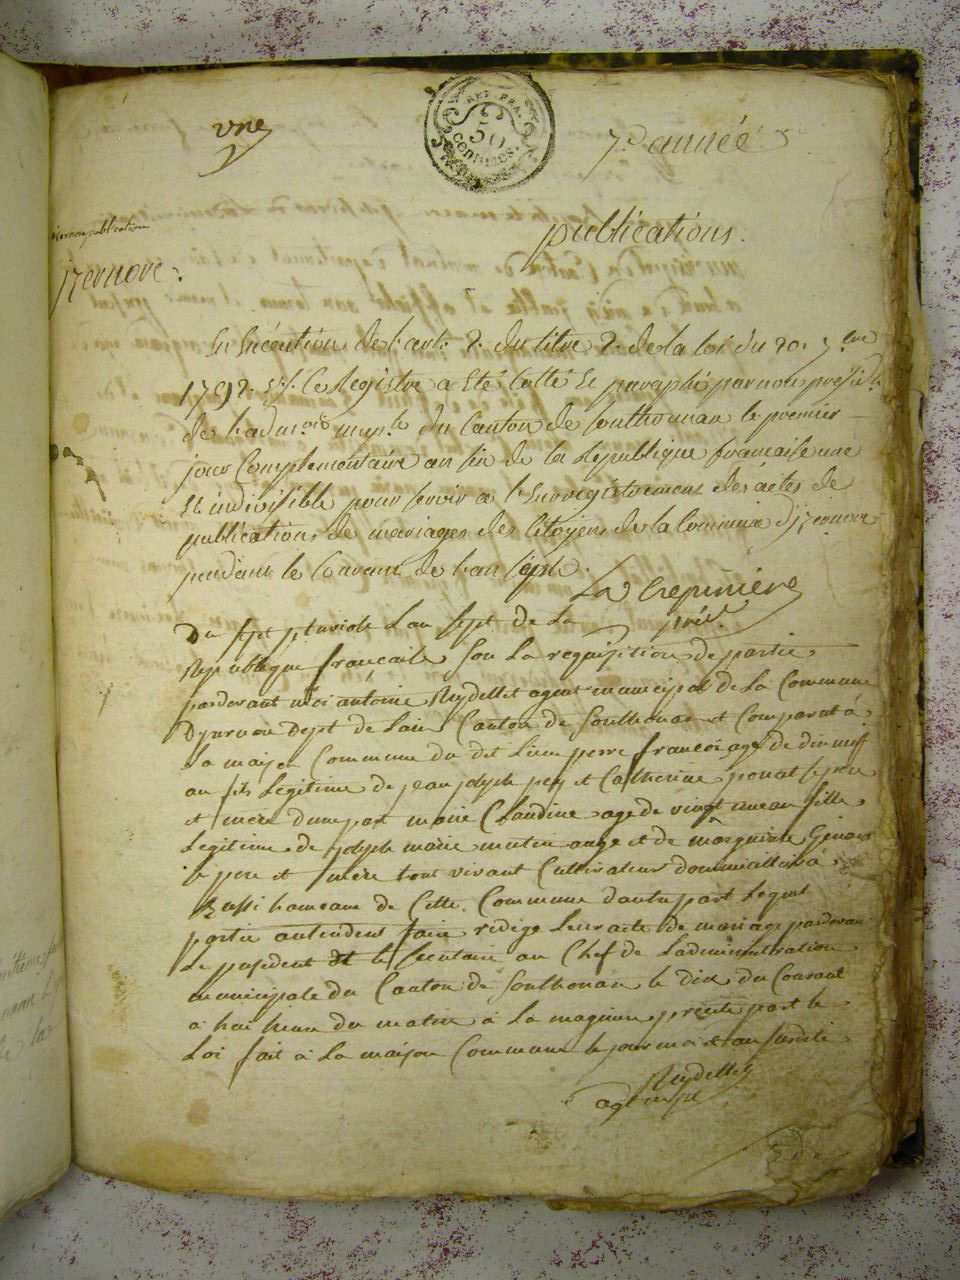 une
REP. FRA.
50
centimes.
7e année
publications.
izernore publication
izernore.
En Exécution de l'art. 2. du titre 2. de la loi du 20. 7.bre
1792. st. Ce Registre a été Cotté Et paraphé par nous présid.t
de l'adm.on mup.le du Canton de Sonthonnax le premier
jour Complémentaire an six de la République française une
Et indivisible pour servir a l'Enregistrement des actes de
publications de mariages des Citoyens de la Commune d'izernore
pendant le Courant de l'an Sept.
La Crepiniere
prést.
Du sept pluviose L'an Sept de La
Republique françaisse Sou La requisition de partie
pardevant moi antoine Reydellet agent municipal de La Commune
Dizernou Dept de Lain Canton de Sonthonax Et Comparut à
La maison Commune du dit Lieu pierre françoi age de dix neuf
an fils Legitime de jean joseph et Catherine ponat Le pere
et mere dune part marie Claudine age de vingt un an fille
Legitime de joseph marie et de marguerite
le pere et mere tout vivant Cultivateur
aussi hameau de Cette Commune dautre part Lequel
partie antendent faire redige Leur acte de mariage pardevan
Le president et le Secretaire au Chef de Ladministration
municipale du Canton de Sonthonax le dix du Courant
a huit heure du matin à La maniere précite part le
Loi fait à La maison Commune le jour moi et an Susdit
Reydellet
agt mpl